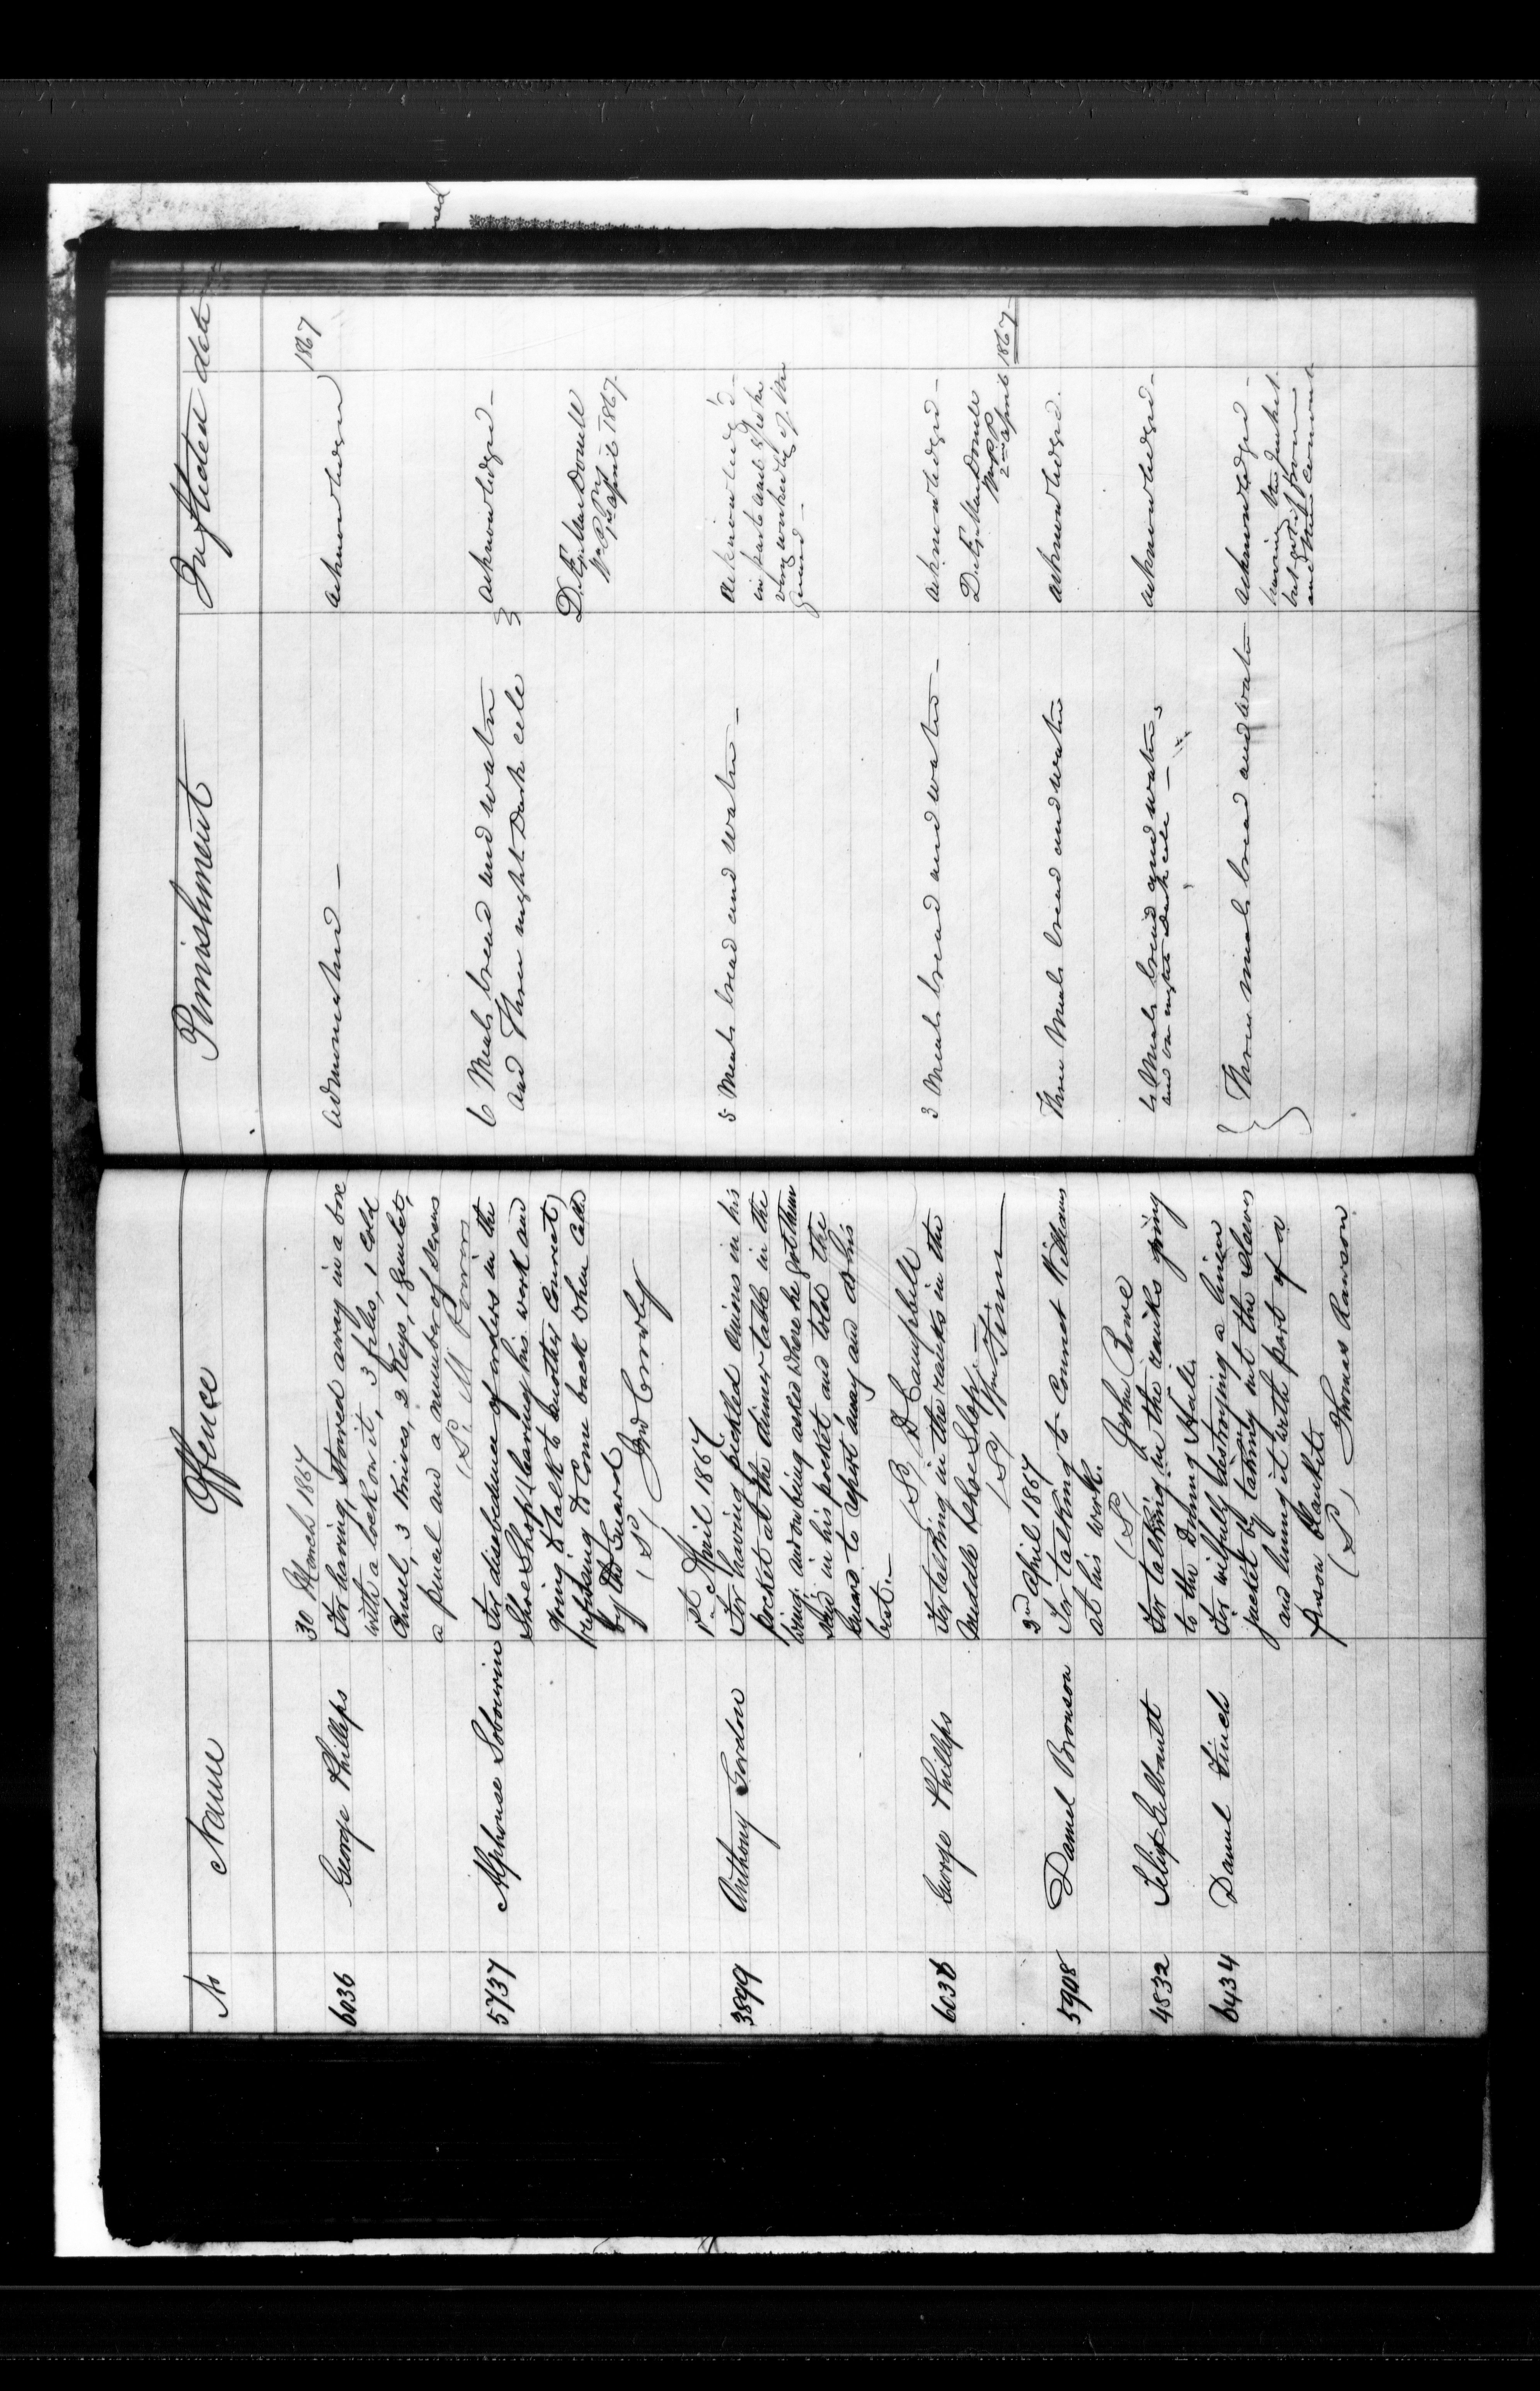 No Name Offence Punishment Inflicted date
30 March 1867 1867
6036 George Phillips For having stowed away in a box admonished – acknowledged
with a lock on it, 3 files, 1 Cold
Chisel, 3 Knives, 2 Keys, 1 Gimlet,
a pencil and a number of screws
(S) M
5737 Alphonse Sobourin For disobedience of orders in the 6 Meals bread and water acknowledged –
Shoe Shop, leaving his work and and Three night Dark cele 3
going to talk to another Convict,
refusing to come back when called D. Æ. MacDonell
by the Guard W. P. P.
(S) Jno Crowley April 1867
1st April 1867
3899 Anthony Gordon For having pickled onions in his 5 Meals bread and water – acknowledg'd –
pocket at the dinner table in the in parte and
wing: and on being asked where he got them very
said in his pocket and told the
guard to report away and do his
best. –
(S) D Campbell
6036 George Phillips For talking in the ranks in the 3 Meals bread and water – acknowledged –
Middle Shoe Shop. – D. Æ. MacDonell
(S) Wm Finn W. P. P.
2nd April 1867 2nd April 1867
5908 Daniel Bronson For talking to Convict Williams Three Meals bread and water acknowledged.
at his work.
(S) John Rowe
4832 Felix Gelbault For talking in the ranks going 4 Meals bread and water acknowledged –
to the Dining Hall. and on night dark cele –
6434 Daniel Finch For wilfully destroying a linen Three meals bread and water acknowledged –
jacket by taking out the sleeves
and lining it with part of a
prison blanket.
(S) Thomas Rawson